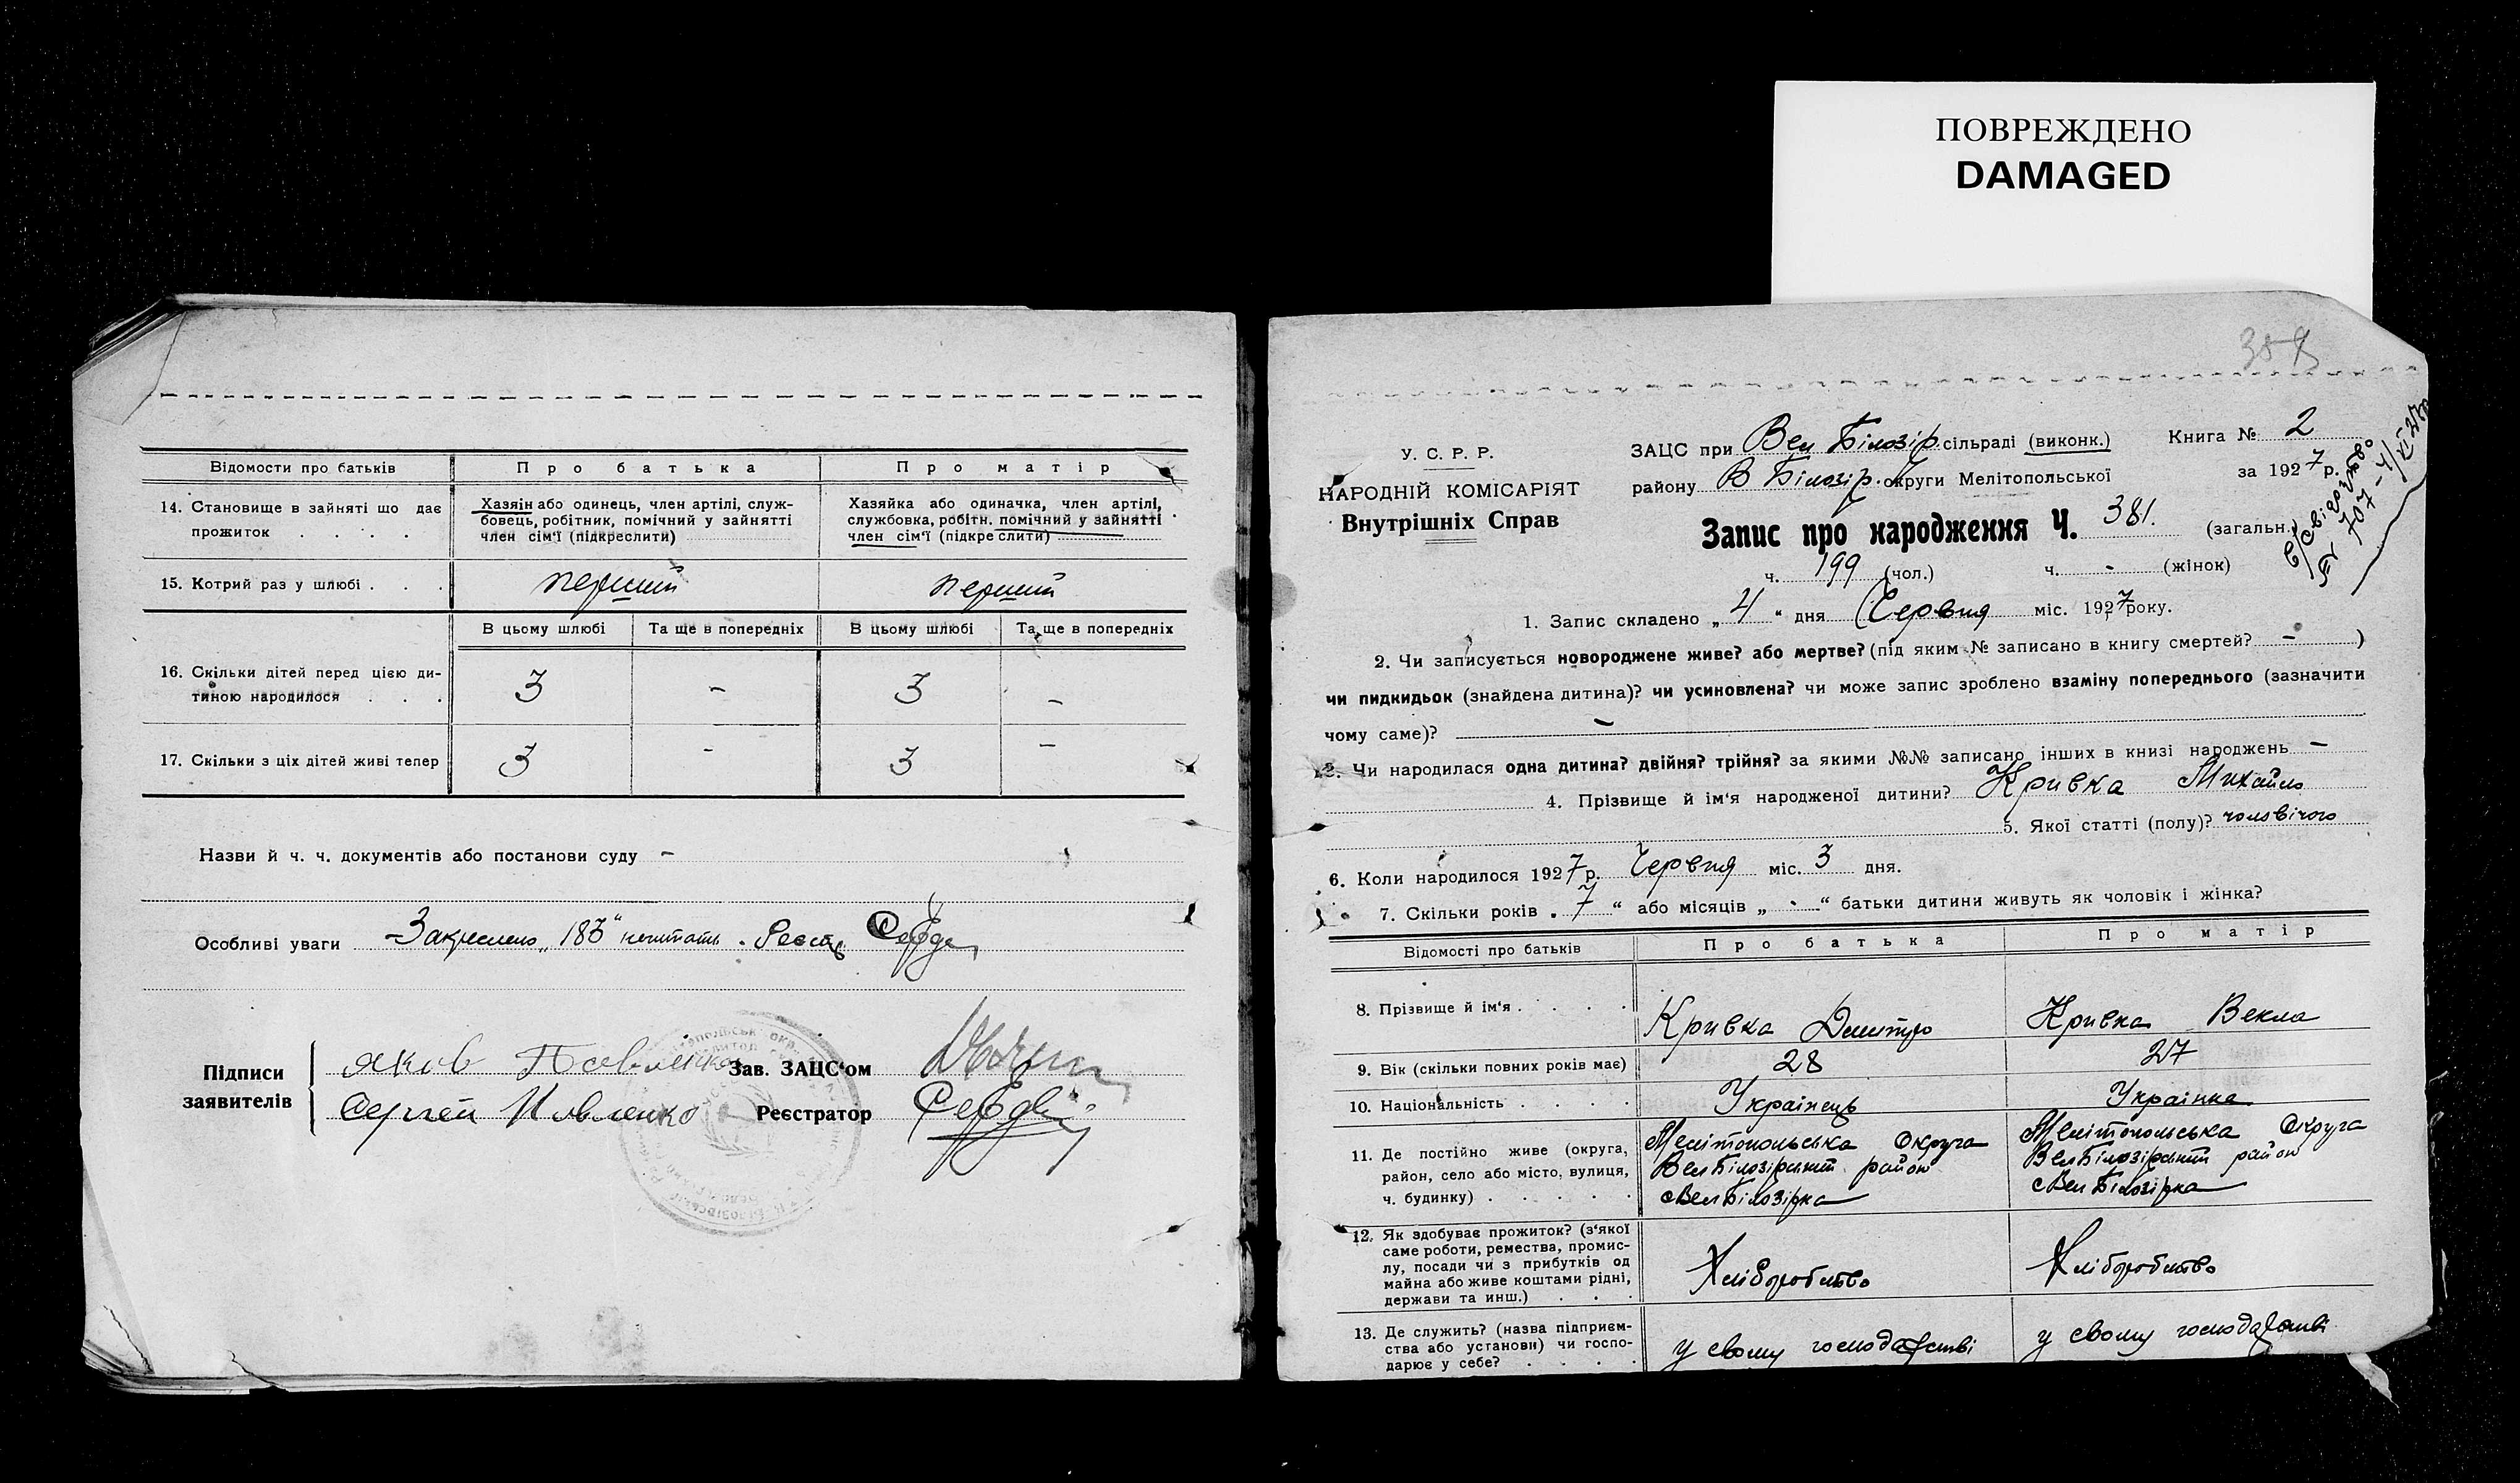 ПОВРЕЖДЕНО
DAMAGED
Відомости про батьків
Про батька
Про матір
14. Становище в зайняті що дає прожиток . . . .
Хазяїн або одинець, член артілі, служ-
бовець, робітник, помічний у зайнятті
член сім'ї (підкреслити)
Хазяйка або одиначка, член артілі,
службовка, робітн. помічний у зайнятті
член сім'ї (підкреслити)
15. Котрий раз у шлюбі . . .
перший
перший
В цьому шлюбі
Та ще в попередніх
В цьому шлюбі
Та ще в попередніх
16. Скільки дітей перед цією ди-
тиною народилося . . .
3 - 3 -
17. Скільки з ціх дітей живі тепер
3 - 3 -
Назви й ч. ч. документів або постанови суду -
Особливі уваги Закреслено „183“ нечитать. Реєстр
Підписи
заявителів
Яков Павленко
Зав. ЗАЦС'ом
Сергей Павленко
Реєстратор
358
У. С. Р. Р.
НАРОДНІЙ КОМІСАРІЯТ
Внутрішніх Справ
ЗАЦС при Вел Білозір. сільраді (виконк.)
Книга № 2
району В Білозір. округи Мелітопольської
за 1927 р.
Запис про народження Ч. 381. (загальн.)
ч. 199 (чол.) ч. - (жінок)
1. Запис складено „4“ дня Червня міс. 1927 року.
2. Чи записується новороджене живе? або мертве? (під яким № записано в книгу смертей? - )
чи пидкидьок (знайдена дитина)? чи усиновлена? чи може запис зроблено взаміну попереднього (зазначити
чому саме)? -
3. Чи народилася одна дитина? двійня? трійня? за якими №№ записано інших в книзі народжень -
4. Прізвище й ім'я народженої дитини? Кривка Михайло
5. Якої статті (полу)? чоловічого
6. Коли народилося 1927 р. Червня міс. 3 дня.
7. Скільки років „7“ або місяців „-“ батьки дитини живуть як чоловік і жінка?
Відомості про батьків
Про батька
Про матір
8. Прізвище й ім'я . . . .
Кривка Дмитро
Кривка Векла
9. Вік (скільки повних років має)
28
27
10. Національність . . . .
Українець
Українка
11. Де постійно живе (округа,
район, село або місто, вулиця,
ч. будинку) . . . . .
Мелітопольська Округа
Вел Білозірський район
с Вел Білозірка
Мелітопольська Округа
Вел Білозірський район
с Вел Білозірка
12. Як здобуває прожиток? (з'якої
саме роботи, ремества, промис-
лу, посади чи з прибутків од
майна або живе коштами рідні,
держави та инш.) . . .
Хліборобство
Хліборобство
13. Де служить? (назва підприєм-
ства або установи) чи госпо-
дарює у себе? . . . .
у свому господарстві
у свому господарстві